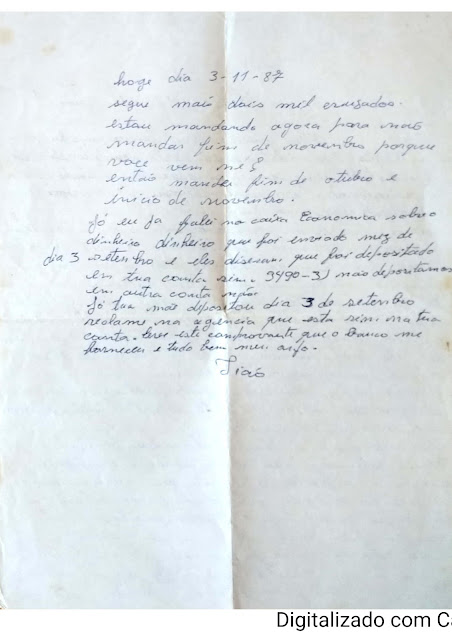 hoge dia 3-11-87
segue mais dois mil crusados.
estou mandando agora para não
mandar fim de novembro porque
voce vem né?
então mandei fim de otubro e
início de novembro.
Jó eu já falei na caixa Economica sobre o
dinheiro dinheiro que foi enviado mez de
dia 3 setembro e eles diseram que foi depositado
em tua conta sim. 3490-3) não depositamos
em outra conta não
Jó tua mãe depositou dia 3 de setembro
reclame na agência que esta sim na tua
conta. leve este comprovante que o banco me
forneceu e tudo bem meu anjo.
Tião
Digitalizado com Ca